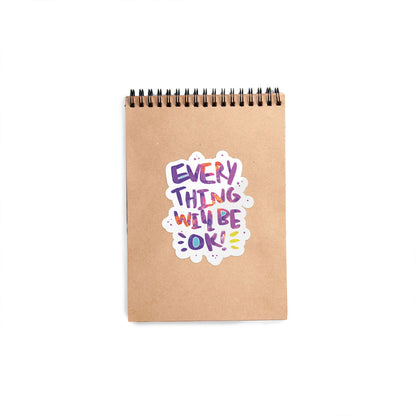 EVERY
THING
WILL BE
OK!